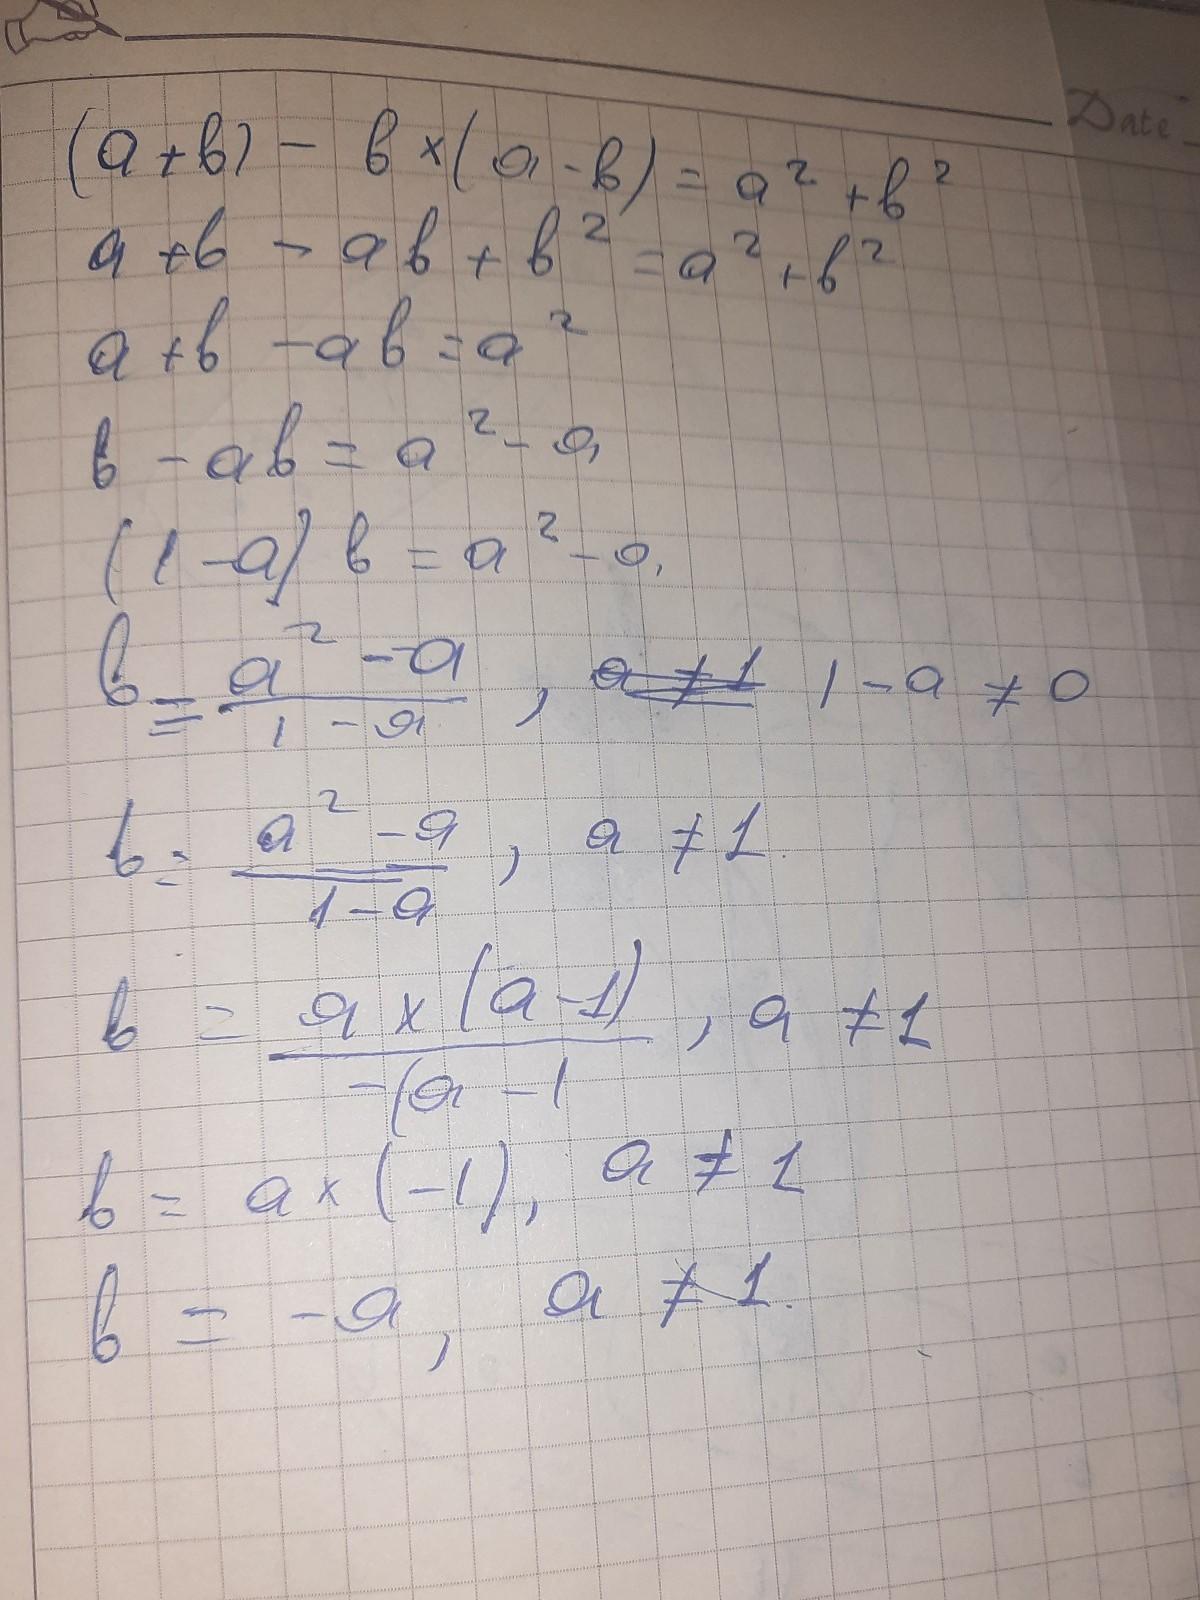 Date
(a+b) - b×(a-b) = a²+b²
a+b - ab + b² = a²+b²
a+b - ab = a²
b - ab = a² - a
(1-a) b = a² - a
b = (a² - a)/(1 - a), a ≠ 1 1 - a ≠ 0
b = (a² - a)/(1 - a), a ≠ 1.
b = (a × (a-1))/(-(a - 1), a ≠ 1
b = a × (-1), a ≠ 1
b = -a, a ≠ 1.